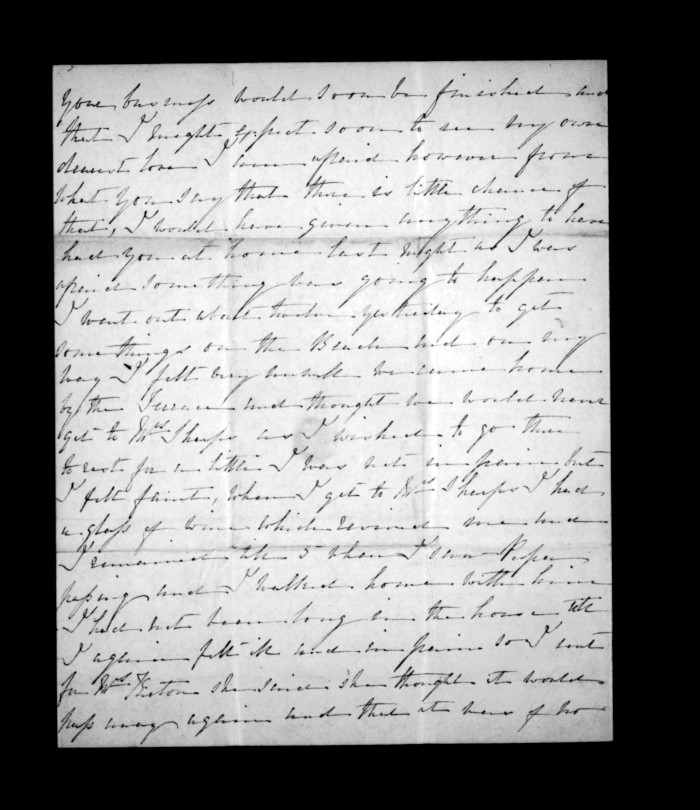 your business would soon be finished and
that I might expect soon to see my own
dearest love I am afraid however from
what you say that there is little chance of
that, I would have given anything to have
had you at home last night as I was
afraid something was going to happen
I went out about twelve yesterday to get
some things on the Beach and on my
way I felt very unwell we came home
by the Terrace and thought we would never
get to Mrs Sharps as I wished to go there
to rest for a little I was not in pain but
I felt faint, when I got to Mrs Sharps I had
a glass of wine which revived me and
I remained till 5 when I saw Papa
passing and I walked home with him
I had not been long in the house till
I again felt ill and in pain so I sent
for Mrs she said she thought it would
pass away again and that it was of no